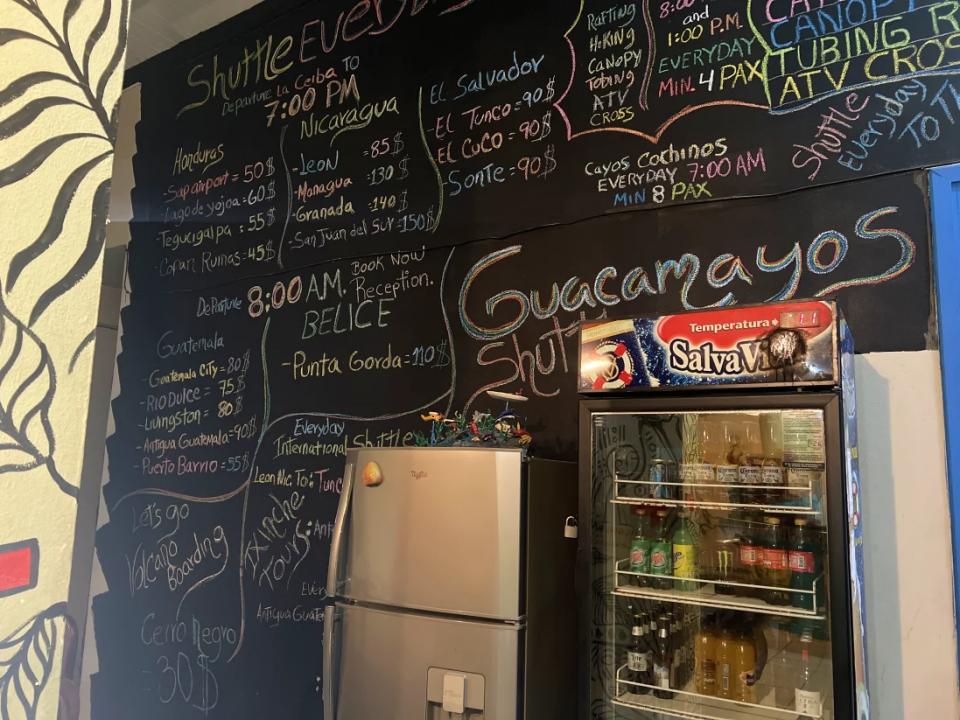 Shuttle EVERY
Departure La Ceiba TO
7:00 PM
Honduras
-Sap airport = 50$
-Lago de yojoa = 60$
-Tegucigalpa : 55$
-Copan Ruinas = 45$
Nicaragua
-Leon = 85$
-Managua = 130$
-Granada = 140$
-San Juan del Sur = 150$
El Salvador
-El Tunco = 90$
-El Cuco = 90$
-Sonte = 90$
RAFTING
HIKING
CANOPY
TUBING
ATV
CROSS
8:00
and
1:00 P.M.
EVERYDAY
MIN. 4 PAX
CANOPY
TUBING R
ATV CROSS
Cayos Cochinos
EVERYDAY 7:00 AM
MIN 8 PAX
Shuttle
Everyday
TO
Departure 8:00 AM.
Book Now
Reception.
Guatemala
-Guatemala City = 80$
-RIO DULCE = 75$
-Livingston = 80$
-Antigua Guatemala = 90$
-Puerto Barrio = 55$
BELICE
-Punta Gorda = 110$
Guacamayos
Shutt
Everyday
International Shuttle
Leon Nic. To: Tunc
IXINCHE
TOURS:
Antigua Guate
Let's go
Volcano
Boarding
Cerro Negro
30$
Temperatura
SalvaVi